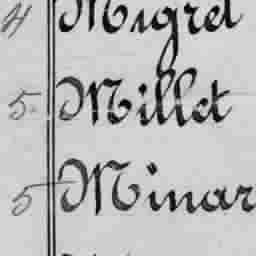 4 Migret
5 Millet
5 Minar